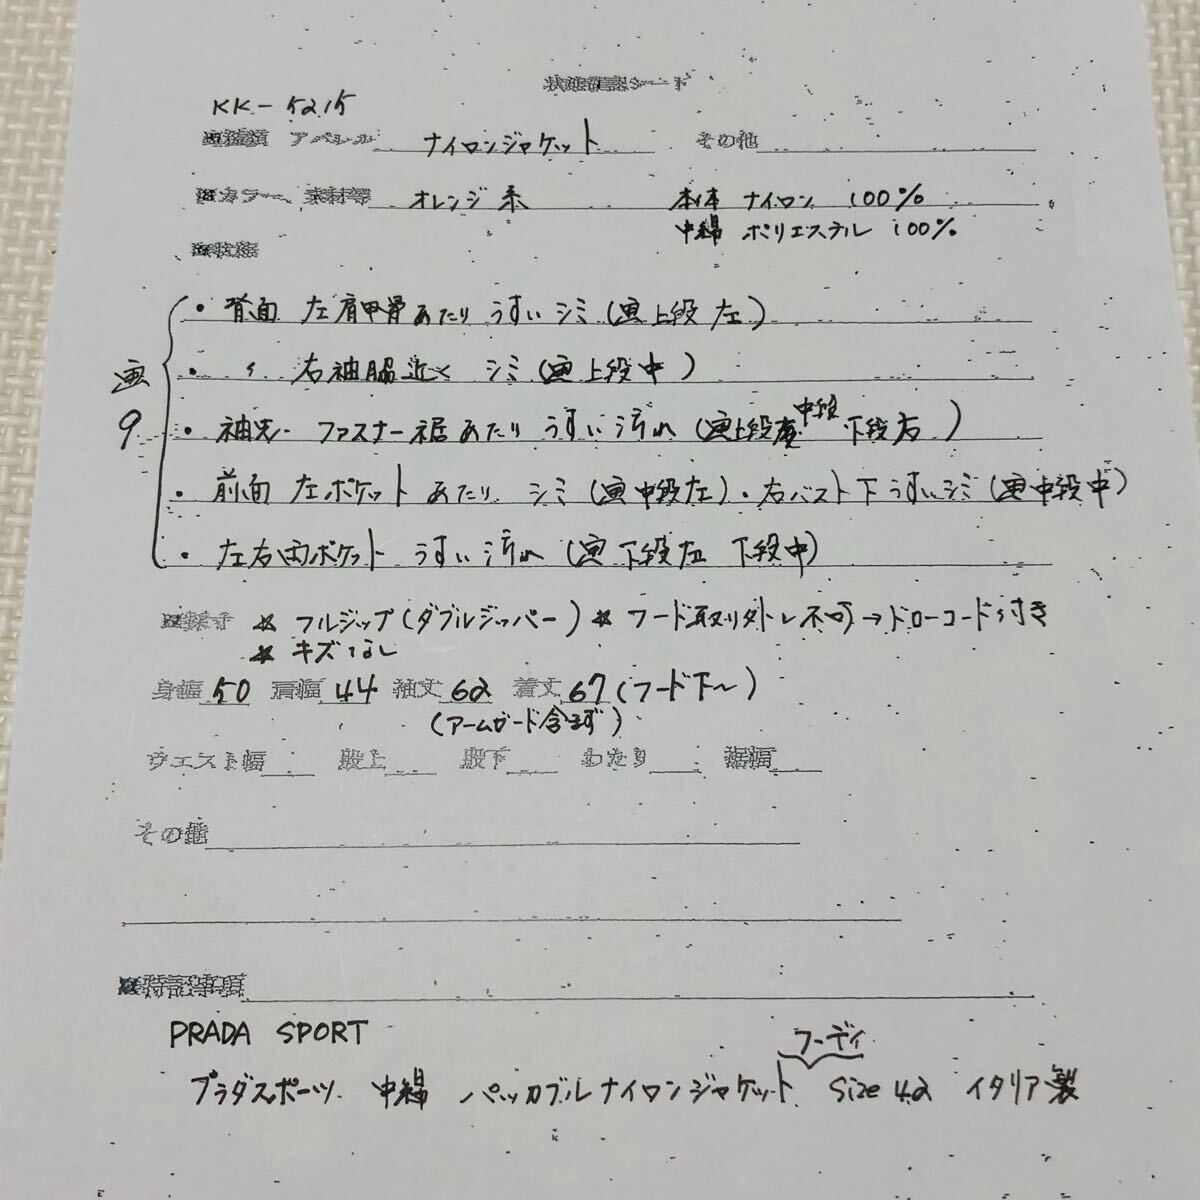 状態確認シート
KK-5215
アパレル ナイロンジャケット その他
カラー、素材等 オレンジ系 本体 ナイロン 100%
中綿 ポリエステル 100%
状態
画9
・背面 左肩甲骨あたり うすいシミ(画上段左)
・〃 右袖脇近く シミ(画上段中)
・袖先・ファスナー裾あたり うすい汚れ(画上段右 中段 下段右)
・前面 左ポケットあたり シミ(画中段左)・右バスト下うすいシミ(画中段中)
・左右内ポケット うすい汚れ(画下段左 下段中)
★フルジップ(ダブルジッパー)★フード取り外し不可→ドローコード付き
★キズなし
身幅 50 肩幅 44 袖丈 62 着丈 67(フード下〜)
(アームガード含まず)
ウエスト幅 股上 股下 わたり 裾幅
その他
特記事項
PRADA SPORT
フーディ
プラダスポーツ 中綿 パッカブルナイロンジャケット Size 42 イタリア製